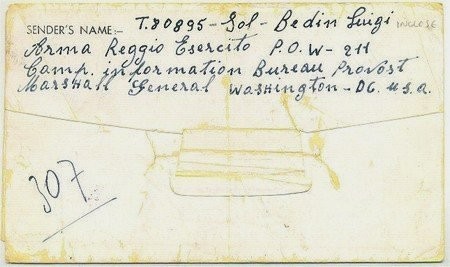 SENDER'S NAME:- T.80895-Sol-Bedin Luigi INCLOSE
Arma Reggio Esercito P.O.W- 2H
Camp. information Bureau Provost
Marshall General Washington-DC. U.S.A.
307